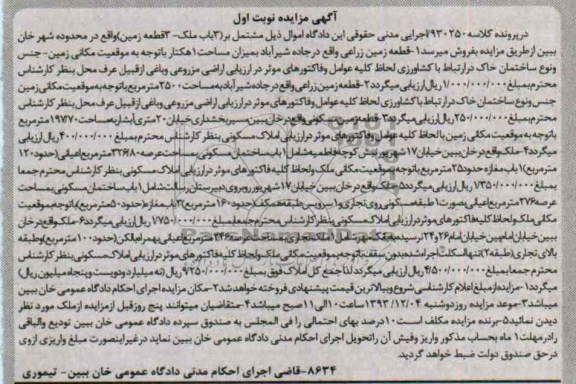 آگهی مزایده نوبت اول
درپرونده کلاسه ۹۳۰۲۵۰/اجرایی مدنی حقوقی این دادگاه اموال ذیل مشتمل بر(۳باب ملک- ۳قطعه زمین)واقع در محدوده شهر خان
ببین ازطریق مزایده بفروش میرسد۱-قطعه زمین زراعی واقع درجاده شیرآباد بمیزان مساحت۱هکتار باتوجه به موقعیت مکانی زمین-جنس
ونوع ساختمان خاک درارتباط با کشاورزی لحاظ کلیه عوامل وفاکتورهای موثر در ارزیابی اراضی مزروعی وباغی ازقبیل عرف محل بنظر کارشناس
محترم بمبلغ۱/۰۰۰/۰۰۰/۰۰۰ریال ارزیابی میگردد۲-قطعه زمین زراعی واقع درجاده شیرآباد به مساحت۲۵۰۰مترمربع باتوجه به موقعیت مکانی زمین
جنس ونوع ساختمان خاک درارتباط با کشاورزی لحاظ کلیه عوامل وفاکتورهای موثر درارزیابی اراضی مزروعی وباغی ازقبیل عرف محل بنظر کارشناس
محترم بمبلغ۲۵۰/۰۰۰/۰۰۰ریال ارزیابی میگردد۳-قطعه زمین مسکونی واقع درخان ببین مسیربخشداری خیابان۲۰متری آبشاربه مساحت۱۹۷/۷۰مترمربع
باتوجه به موقعیت مکانی زمین بالحاظ کلیه عوامل وفاکتورهای موثر درارزیابی املاک مسکونی بنظر کارشناس محترم بمبلغ۴۰۰/۰۰۰/۰۰۰ریال ارزیابی
میگردد۴-ملک واقع درخان ببین خیابان۱۷شهریور نبش کوچه فاطمیه شامل۱باب ساختمان مسکونی به مساحت عرصه۳۲۶/۸۰مترمربع اعیانی(حدود۱۲۰
مترمربع)۱باب مغازه حدود۲۵مترمربع باتوجه به موقعیت مکانی ملک ولحاظ کلیه فاکتورهای موثر درارزیابی املاک مسکونی بنظر کارشناس محترم جمعا
بمبلغ۱/۳۵۰/۰۰۰/۰۰۰ریال ارزیابی میگردد۵-ملک واقع درخان ببین خیابان۱۷شهریور روبروی دبیرستان رسالت شامل۱باب ساختمان مسکونی به مساحت
عرصه۲۷۶مترمربع اعیانی بصورت۱طبقه مسکونی روی تجاری و۱سرویس طبقه همکف(حدود۱۶۰مترمربع)۳باب مغازه(حدود۵۰مترمربع)باتوجه به موقعیت
مکانی ملک ولحاظ کلیه فاکتورهای موثر درارزیابی املاک مسکونی بنظر کارشناس محترم جمعا بمبلغ۱/۷۵۰/۰۰۰/۰۰۰ریال ارزیابی میگردد۶-ملک واقع درخان
ببین خیابان امام بین خیابان امام۲۴و۲۶نرسیده به بانک مهر شامل۱ملک تجاری به مساحت عرصه۲۴۶مترمربع اعیانی بهمراه بالکن(حدود۱۰۰مترمربع)وطبقه
بالای تجاری(طبقه۲)تنها اسکلت اجرا شده بدون سقف باتوجه به موقعیت مکانی ملک ولحاظ کلیه فاکتورهای موثر درارزیابی املاک مسکونی بنظر کارشناس
محترم جمعا بمبلغ۴/۵۰۰/۰۰۰/۰۰۰ریال ارزیابی میگردد لذا جمع کل املاک فوق بمبلغ۹/۲۵۰/۰۰۰/۰۰۰ریال (نه میلیارد و دویست و پنجاه میلیون ریال)
میگردد۱-مزایده از مبلغ اعلام کارشناسی شروع وبه بالاترین قیمت پیشنهادی فروخته خواهد شد۲-مکان مزایده اجرای احکام دادگاه عمومی خان ببین
میباشد۳-موعد مزایده روز دوشنبه ۱۳۹۳/۱۲/۰۴ ساعت۱۰الی۱۱صبح میباشد۴-متقاضیان میتوانند پنج روز قبل از مزایده از ملک مورد نظر
دیدن نمائید۵-برنده مزایده مکلف است۱۰درصد بهای احتمالی را فی المجلس به صندوق سپرده دادگاه عمومی خان ببین تودیع والباقی
رادرمهلت۱ ماه بحساب مذکور واریز وفیش آن راتحویل اجرای احکام دادگاه عمومی خان ببین نماید درغیراینصورت مبلغ واریزی ازوی
درحق صندوق دولت ضبط خواهد گردید.
۸۶۳۴-قاضی اجرای احکام مدنی دادگاه عمومی خان ببین- تیموری